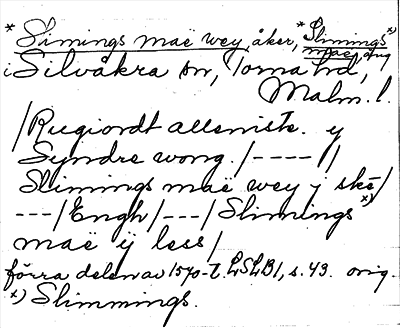 * Slimings maë wey, åker, * Slimings x)
i Silvåkra sn, Torna hd, maë, äng
Malm. l.
/Rugiordt allenist. y
Syndre vong. /----//
Slimings maë wey y skë/
---/Engh/---/Slimings x)
maë ÿ less/
förra delen av 1570-t. LSLB1, s. 43. orig.
x) Slimmings.